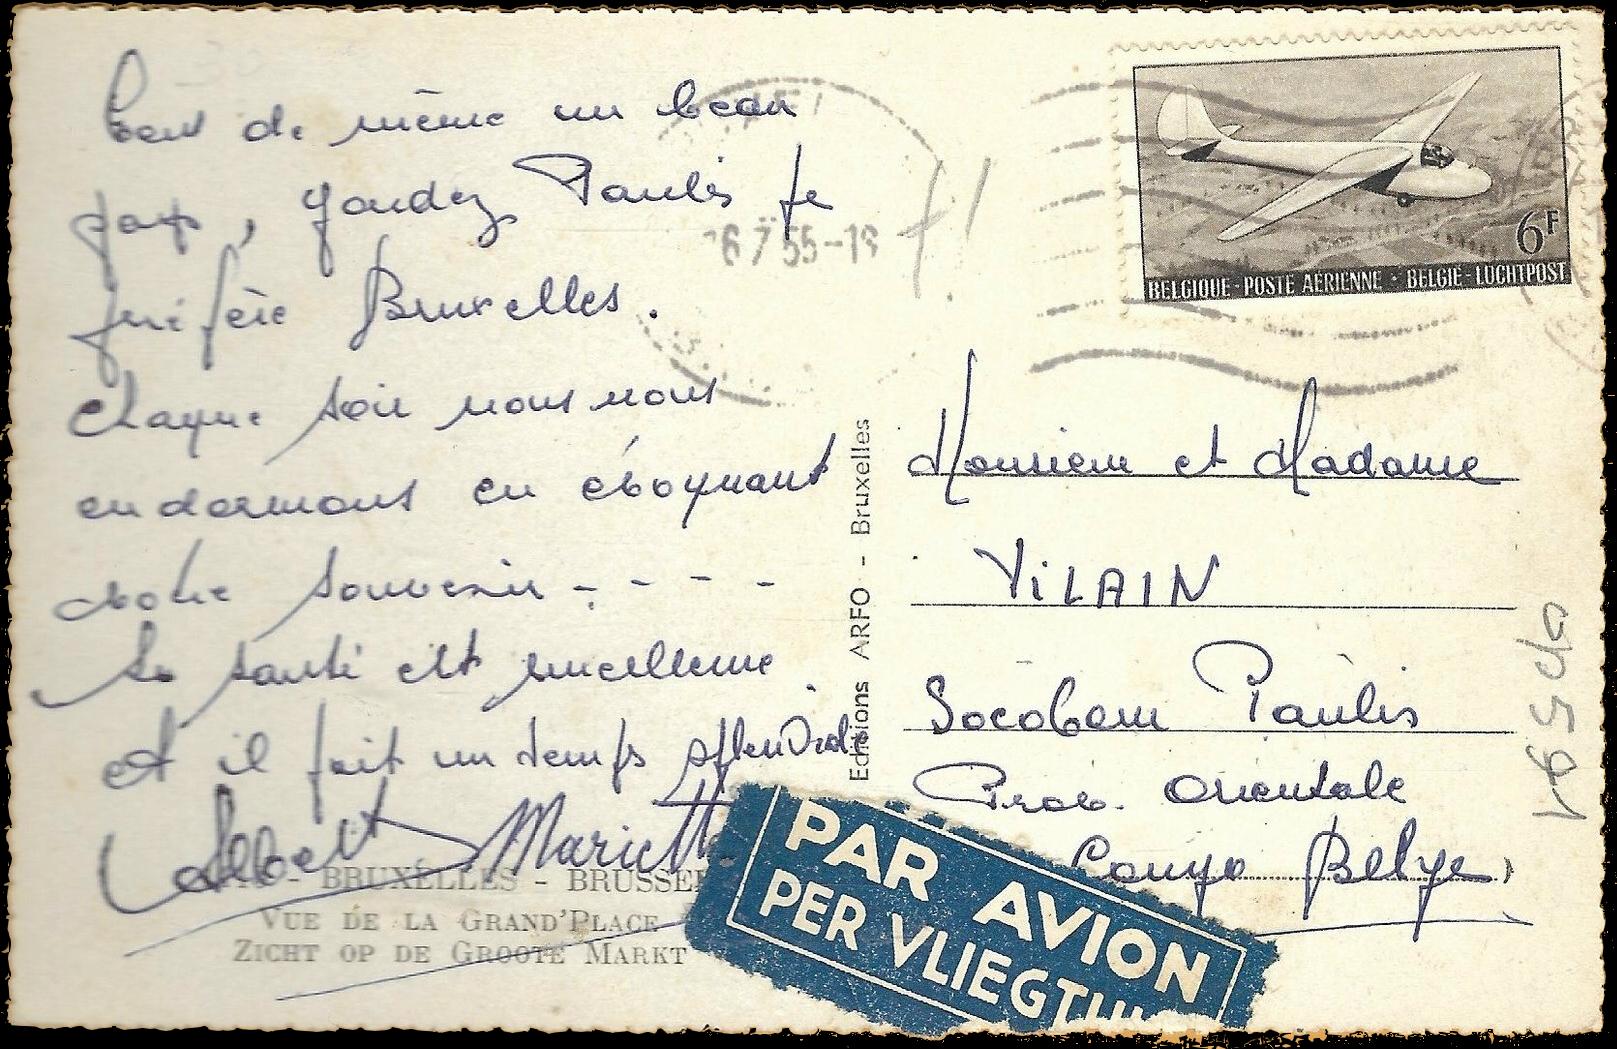 tout de même un beau
pays, gardez Paulis je
préfère Bruxelles.
chaque soir nous nous
endormons en évoquant
votre souvenir - - - -
La santé est excellente
et il fait un temps splendide
Albert Mariette
BRUXELLES - BRUSSEL
VUE DE LA GRAND'PLACE
ZICHT OP DE GROOTE MARKT
Editions ARFO - Bruxelles
6 7 55-18
6F
BELGIQUE-POSTE AÉRIENNE · BELGIË-LUCHTPOST
Monsieur et Madame
ViLAIN
Socobom Paulis
Prov. Orientale
Congo Belge
PAR AVION
PER VLIEGTUI